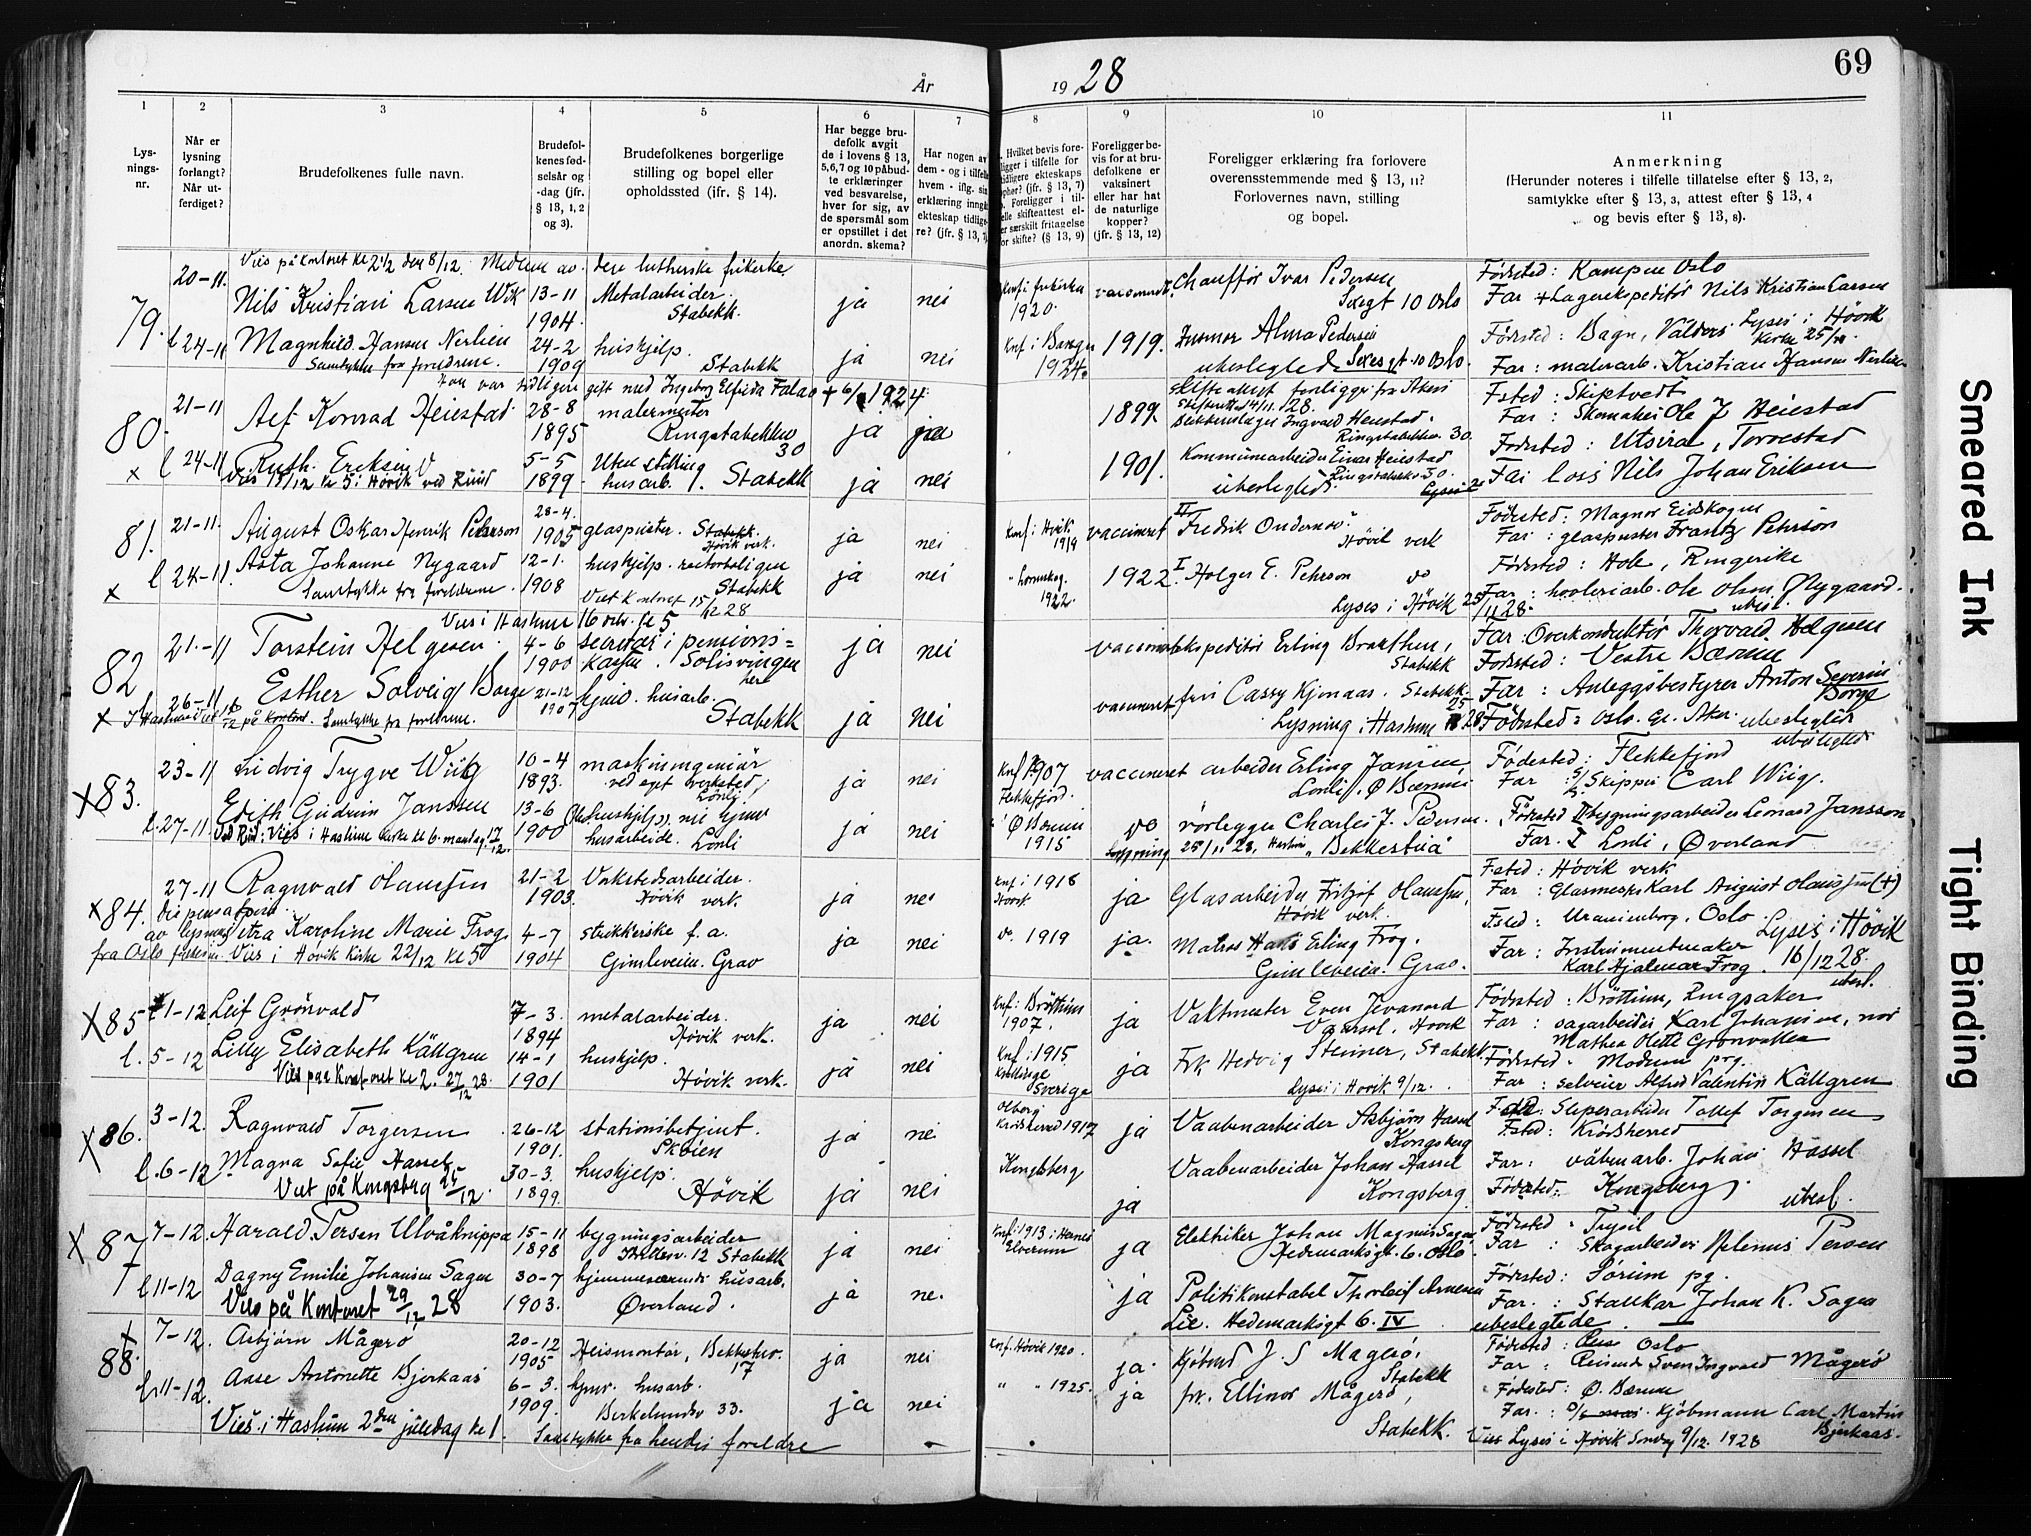 År 1928
69
1
2
3
4
5
6
7
8
9
10
11
Lys-
nings-
nr.
Når er
lysning
forlangt?
Når ut-
ferdiget?
Brudefolkenes fulle navn.
Brudefol-
kenes fød-
selsår og
-dag (jfr.
§ 13, 1, 2
og 3).
Brudefolkenes borgerlige
stilling og bopel eller
opholdssted (ifr. § 14).
Har begge bru-
defolk avgit
de i lovens § 13,
5,6,7 og 10 påbud-
te erklæringer
ved besvarelse,
hver for sig, av
de spørsmål som
er opstillet i det
anordn. skema?
Har nogen av
dem - og i tilfelle
hvem - iflg. sin
erklæring inngå
ekteskap tidlige-
re? (jfr. § 13, 7)
Hvilket bevis fore-
ligger i tilfelle for
tidligere ekteskaps
ophør? (jfr. § 13, 7)
Foreligger i til-
felle skifteattest el-
ler særskilt fritagelse
for skifte? (§ 13, 9)
Foreligger be-
vis for at bru-
defolkene er
vaksinert
eller har hat
de naturlige
kopper?
(jfr. § 13, 12)
Foreligger erklæring fra forlovere
overensstemmende med § 13, 11?
Forlovernes navn, stilling
og bopel.
Anmerkning
(Herunder noteres i tilfelle tillatelse efter § 13, 2,
samtykke efter § 13, 3, attest efter § 13, 4
og bevis efter § 13, 8).
Vies på kontoret kl 2 1/2 den 8/12. Medlem av den lutherske frikirke
79. 20-11 Nils Kristian Larsen Wik 13-11 1904. Metalarbeider. Stabekk. ja nei
1920. Chauffør Ivar Pedersen 10 Oslo
Fødsted: Kampen Oslo
Far + Lagerekspeditør Nils Kristian Larsen
l 24-11 Magnhild Hansen Nerlien 24-2 1909 huskjelp. Stabekk ja nei
Samtykke fra foreldrene.
Knf i 1924. 1919. Alma Pedersen
ubeslegtede 10 Oslo.
Fødsted: Bagn, Valdres Lyses i Høvik Kirke 25/11.
Far: malerarb. Kristian Hansen Nerlien
Han var tidligere gift med Ingeborg Elfrida + 1924.
80. 21-11 Alf Konrad Heiestad 28-8 1895 malermester Ringstabekkv 30 ja ja
1899 skifteattest foreligger fra Akers
14/11. 28. Ingvald Heiestad. Ringstabekkv. 30
Fsted: Skiptvedt
Far: Skomaker Ole J Heiestad
x l 24-11 Ruth Eriksen 5-5 1899 Uten stilling husarb. Stabekk ja nei
Vies 15/12 kl 5 i Høvik ved Ruud
1901. Kommunearbeider Einar Heiestad Ringstabekkv 30.
ubeslegted.
Fødsted: Utsira, Torvestad
Far lods Nils Johan Eriksen
81. 21-11 August Oskar Henrik Pehrson 28-4. 1905 glaspuster. Stabekk. Høvik verk. ja nei
Knf. i Høvik 1919 vaccineret II Fredrik Høvik verk
Fødested: Magnor Eidskogen
Far: glaspuster Frantz Pehrson
x l 24-11. Asta Johanne Nygaard 12-1. 1908 huskjelp. Stabekk ja nei
Samtykke fra foreldrene. Viet Kontoret 15/12 28
" Lørenskog. 1922. 1922 I Holger E. Pehrson do
Lyses i Høvik 25/11 28.
Fødsted: Hole, Ringerike
Far: høvleriarb. Ole Olsen Nygaard. ubesl.
Vies i Haslum 16 kl 5
82 21-11 Torstein Helgesen. 4-6 1900 sekretær i pensions=kassen. Solisvingen her ja nei
ekspeditør Erling Braathen, Stabekk
Far: Overkonduktør Thorvald Helgesen
Fødsted: Vestre Bærum
x l 26-11 Esther Solveig Borge 21-12 1907 hjmv. husarb. Stabekk ja nei
på kontoret. Samtykke fra foreldrene.
vaccineret frk Cassy Kjonaas. Stabekk.
Lysning i Haslum 25 28
Far: Anleggsbestyrer Anton Severin Borge
Fødsted: Oslo. ubeslegted
x 83. 23-11 Ludvig Trygve Wiig 10-4 1893. maskiningeniør ved eget verksted, Lønli ja nei
Knf. 1907 Flekkefjord. vaccineret arbeider Erling Jansen Lønli. Ø Bærum
Fødested: Flekkefjord ubeslegted
Far: Skipper Carl Wiig.
l. 27-11 Edith Gudrun Janssen 13-6 1900 husarbeide. Lønli ja nei
Vies i Haslum kirke kl 6 mandag 17/12.
Ø Bærum 1915 do rørlegger Charles J. Pedersen. "Bekkestua"
25/11 28, Haslum
Fødested II bygningsarbeider Leonard Jansson
Far. I Lønli, Øverland
x 84. 27-11 Ragnvald Olaussen 21-2 1903. Verkstedsarbeider. Høvik verk. ja nei
Knf i 1918 Høvik. ja Glasarbeider Fritjof Olaussen, Høvik verk.
Fsted: Høvik verk
Far: Glasmester Karl August Olaussen (+)
Karoline Marie Frog. 4-7 1904 strikkerske f.a. Gimleveien. Grav ja nei
fra Oslo Vies i Høvik Kirke 22/12 kl 5
do. 1919 ja. Matros Hans Erling Frog. Gimleveien. Grav.
Fsted: Uranienborg, Oslo. Lyses i Høvik 16/12 28.
Far: Instrumentmaker Karl Hjalmar Frog. ubesl.
x 85 1-12. Leif Grønvald 7-3. 1894 metalarbeider. Høvik verk. ja nei
Knf i Brøttum 1907. ja Vaktmester Even Jevanord Høvik
Fødsted: Brøttum, Ringsaker
Far: sagarbeider Karl Johansen, mor Mathea Olette Grønvolden
l. 5-12 Lilly Elisabeth Källgren 14-1 1901 huskjelp. Høvik verk. ja nei
Vies paa Kontoret kl 2. 27/12 28.
Knf. i 1915. Sverige ja Frk Hedvig Steiner, Stabekk.
Lyses i Høvik 9/12.
Fødsted: Modum prg.
Far: selveier Alfred Valentin Källgren
x 86. 3-12. Ragnvald Torgersen 26-12 1901. stationsbetjent. Skøien ja nei
Olberg Krødsherred 1917 ja Vaabenarbeider Asbjørn Hassel Kongsberg
Far: Sliperarbeider Tollef Torgersen
Fsted: Krødsherred
l. 6-12 Magna Sofie Hassel 30-3. 1899. huskjelp. Høvik ja nei
Viet på Kongsberg 25/12.
Kongsberg ja Vaabenarbeider Johan Hassel Kongsberg
Far: våbenarb. Johan Hassel
Fødested: Kongsberg. ubesl.
x 87 7-12. Harald Persen Ulvåknippa 15-11 1898 bygningsarbeider 12 Stabekk ja nei
Knf. i 1913 i Elverum ja Elektriker Johan Magnus Sagen Hedemarksgt. 6. Oslo.
Fødsted: Trysil
Far: Skogarbeider Persen
l 11-12 Dagny Emilie Johansen Sagen 30-7 1903. hjemmeværende husarb. Øverland. ja nei
Vies på Kontoret 29/12 28
ja Politikonstabel Thorleif Arnesen Lie. Hedemarksgt 6. IV
Fødsted: Sørum pg.
Far.: Stallkar Johan K. Sagen
ubeslegtede.
x 88. 7-12. Asbjørn Mågerø 20-12 1905 Heismontør, 17 ja nei
Knf. Høvik 1920. ja. Kjøbmd J. S Magerø, Stabekk
Fødsted: Oslo
Far: Reisende Sven Ingvald Mågerø
l 11-12. Aase Antonette Bjerkaas 6-3. 1909. hjmv. husarb. 33. ja nei
" " 1925. ja frk. Ellinor Mågerø, Stabekk.
Fødsted: Ø. Bærum
Far.: Kjøbmann Carl Martin Bjerkaas.
Vies i Haslum 2den juledag kl 1. Samtykke fra hendes foreldre
Lyses i Høvik Søndag 9/12. 1928
Smeared Ink
Tight Binding